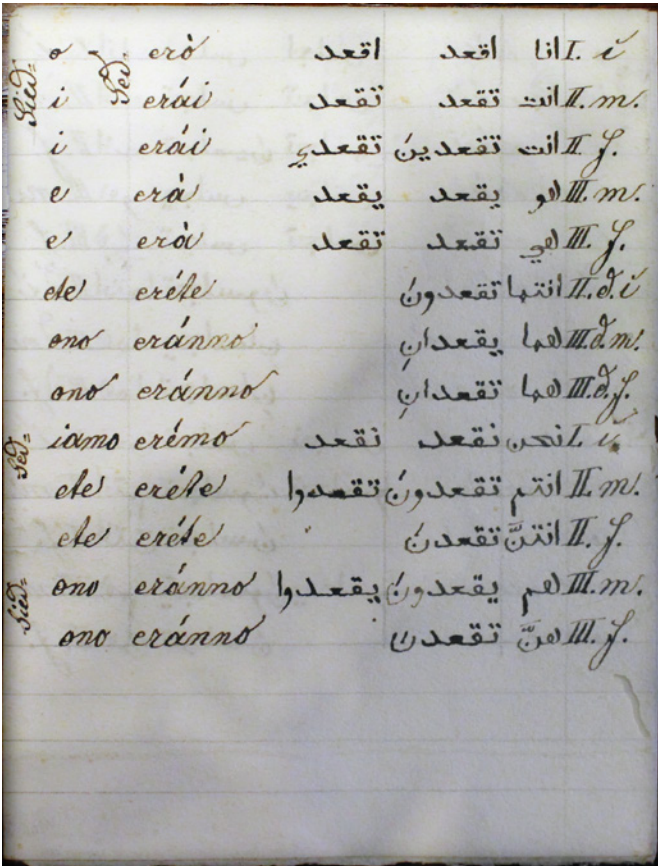 Sied= o - Sed. erò اقعد اقعد انا I. i
i erái تقعد تقعد انت II. m.
i erái تقعدي تقعدين انت II f.
e erà يقعد يقعد هو III. m.
e erà تقعد تقعد هي III. f.
ete eréte تقعدون انتما II. d. i
ono eránno يقعدانِ هما III. d. m.
ono eránno تقعدانِ هما III. d. f.
Sed= iamo erémo نقعد نقعد نحن I. i.
ete eréte تقعدوا تقعدونَ انتم II. m.
ete eréte تقعدنَ انتنَّ II. f.
Sied= ono eránno يقعدوا يقعدونَ هم III. m.
ono eránno تقعدنَ هنَّ III. f.